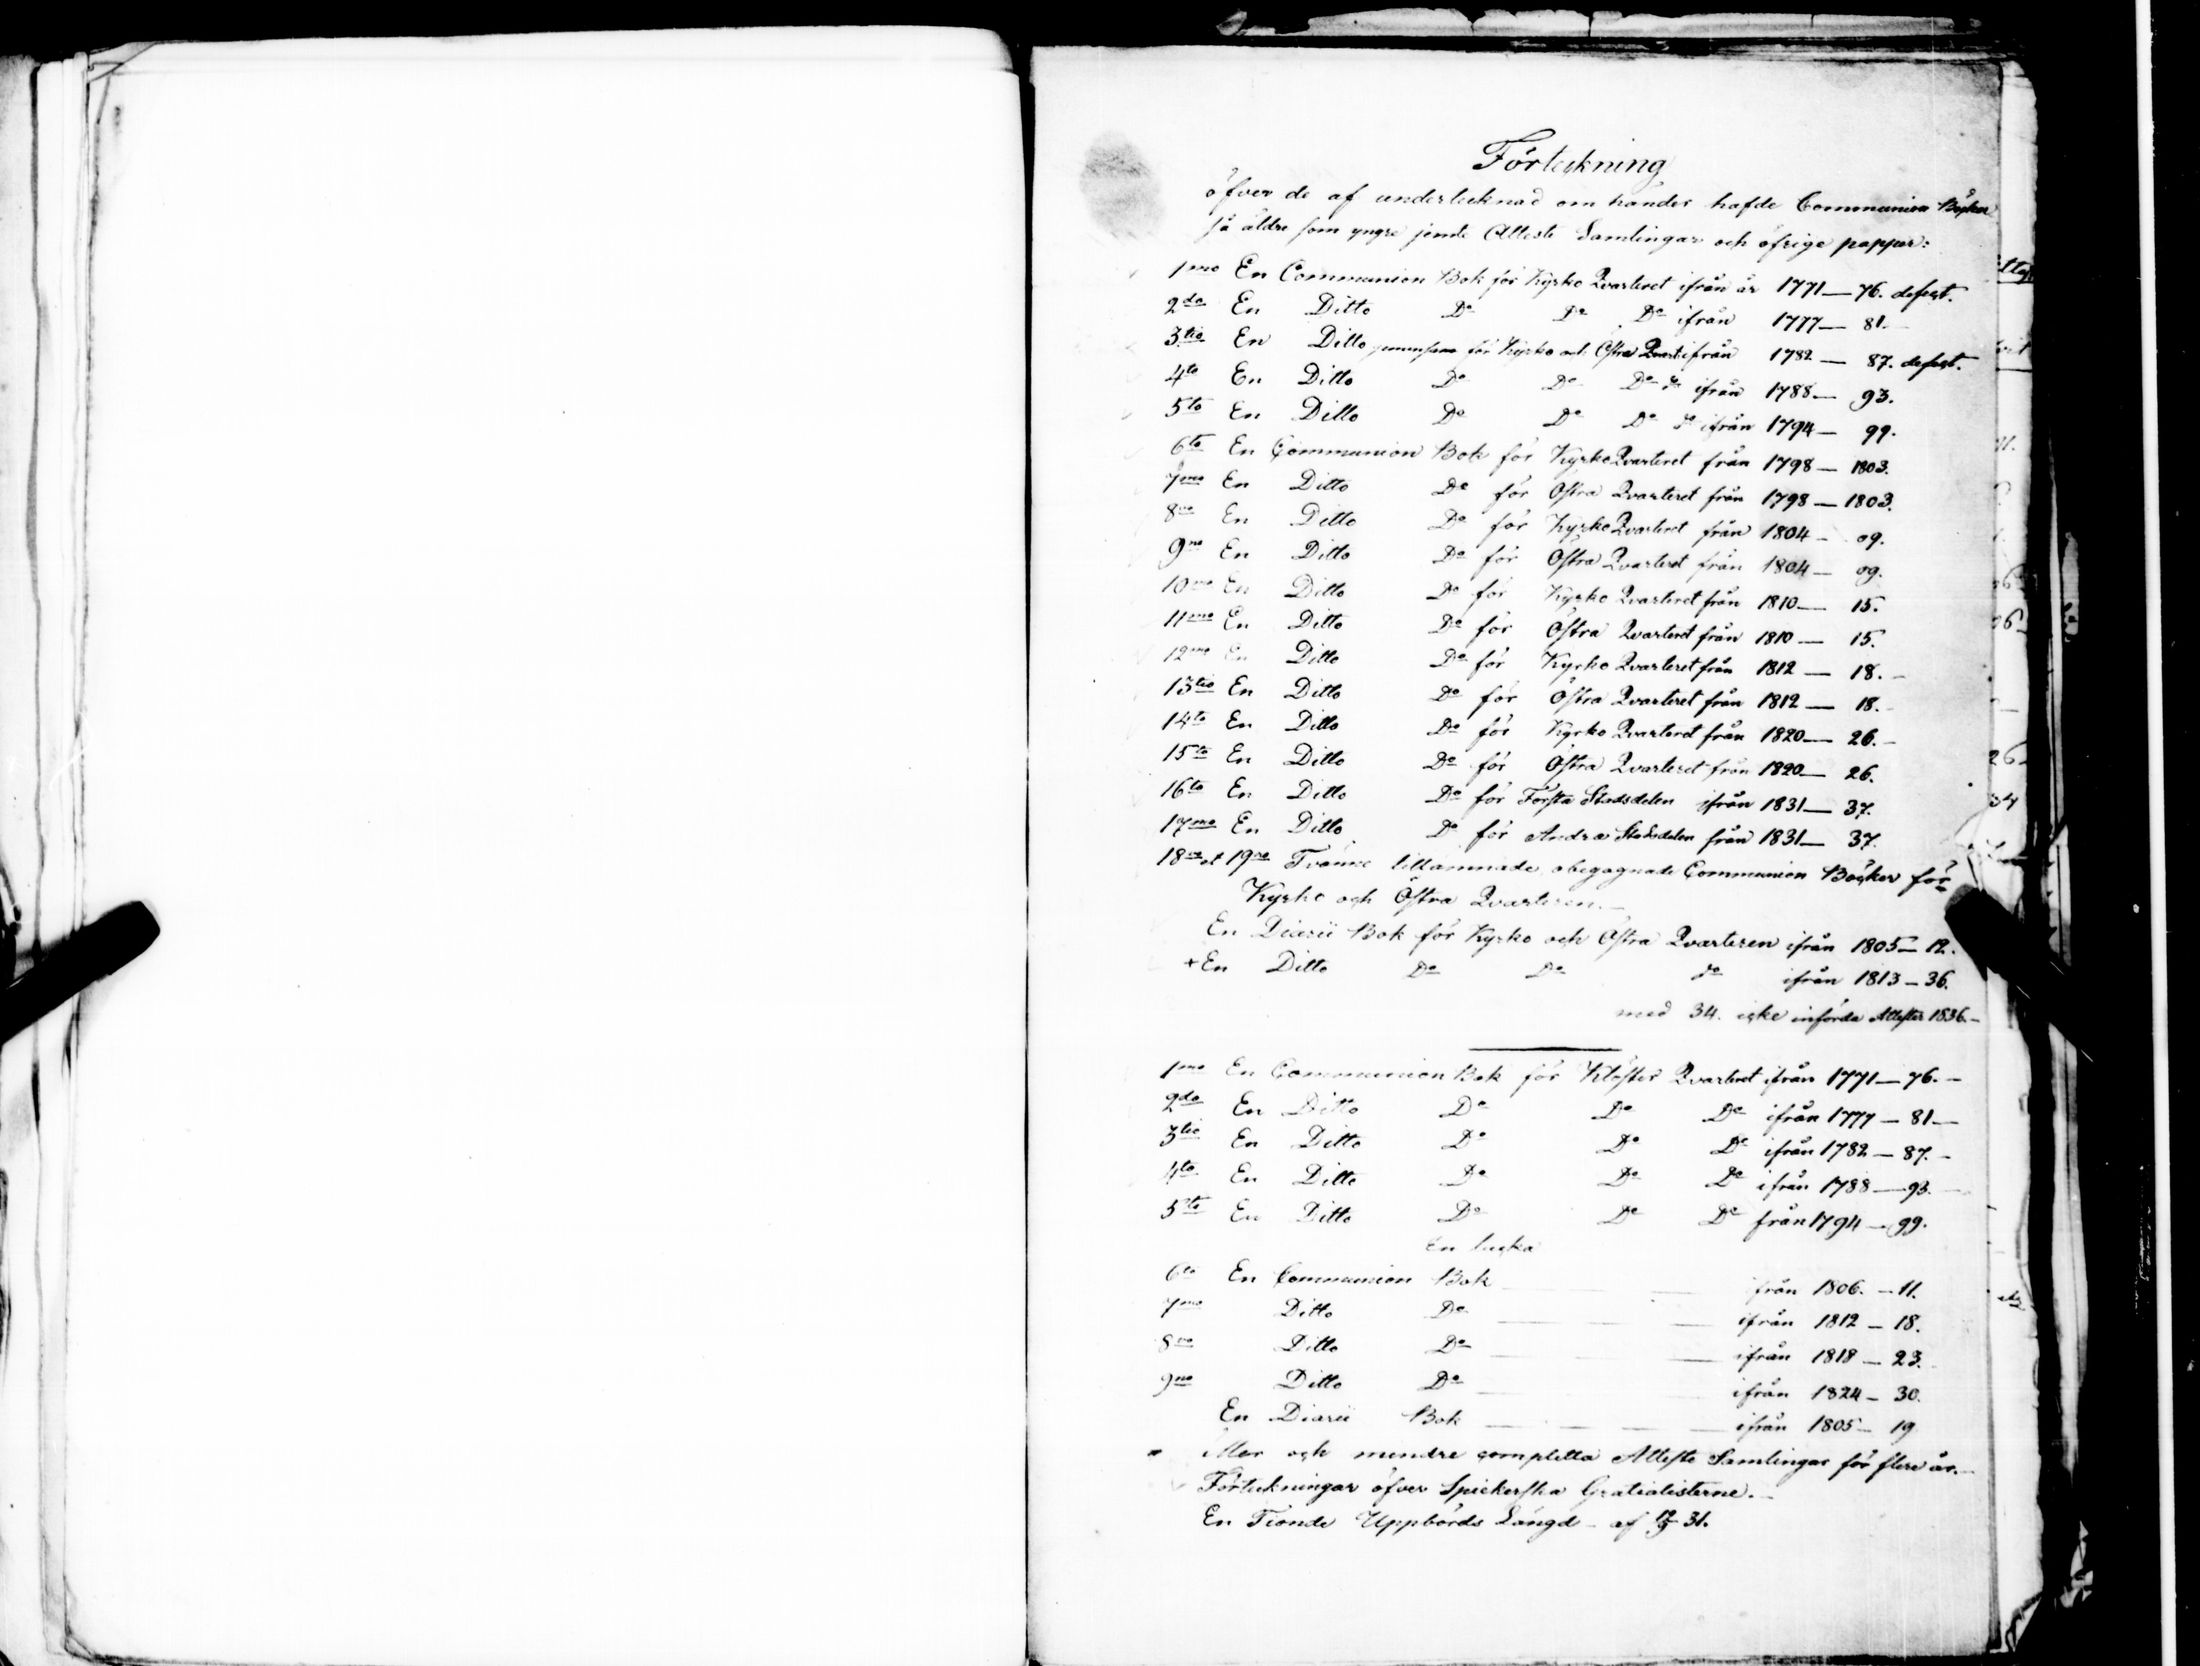 Förteckning
öfver de af undertecknad om händer hafde Communion Böcker
så äldre som yngre jemte Atteste Samlingar och öfrige papper:
1mo En Communion Bok för Kyrko Qvarteret ifrån år 1771—76. defect.
2do En Ditto Do Do Do ifrån 1777—81.—
3tio En Ditto gemensam för Kyrko och Östra Qvart ifrån 1782—87. defect.
4to En Ditto Do Do Do do ifrån 1788—93.
5to En Ditto Do Do Do do ifrån 1794—99.
6to En Communion Bok för Kyrko Qvarteret från 1798—1803.
7mo En Ditto Do för Östra Qvarteret från 1798—1803.
8vo En Ditto Do för Kyrko Qvarteret från 1804—09.
9no En Ditto Do för Östra Qvarteret från 1804—09.
10mo En Ditto Do för Kyrko Qvarteret från 1810—15.
11mo En Ditto Do för Östra Qvarteret från 1810—15.
12mo En Ditto Do för Kyrko Qvarteret från 1812—18.—
13tio En Ditto Do för Östra Qvarteret från 1812—18.
14to En Ditto Do för Kyrko Qvarteret från 1820—26.—
15to En Ditto Do för Östra Qvarteret från 1820—26.
16to En Ditto Do för Första Stadsdelen ifrån 1831—37.
17mo En Ditto Do för Andra Stadsdelen från 1831—37.
18vo et 19no Tvänne tillämnade, obegagnade Communion Böcker för
Kyrko och Östra Qvarteren.—
En Diarii Bok för Kyrko och Östra Qvarteren ifrån 1805—12.
+ En Ditto Do Do do ifrån 1813—36.
med 34. icke införda Attester 1836.—
1mo En Communion Bok för Kloster Qvarteret ifrån 1771—76.—
2do En Ditto Do Do Do ifrån 1777—81—
3tio En Ditto Do Do Do ifrån 1782—87.—
4to En Ditto Do Do Do ifrån 1788—93.
5to En Ditto Do Do Do från 1794—99.
En lucka
6to En Communion Bok ifrån 1806.—11.
7mo Ditto Do ifrån 1812—18.
8vo Ditto Do ifrån 1818—23.
9no Ditto Do ifrån 1824—30.
En Diarii Bok ifrån 1805—19
Mer och mindre completta Atteste Samlingar för flere år.—
Förteckningar öfver Spiekerska Gratialisterne.—
En Tionde Uppbörds Längd—af 31.